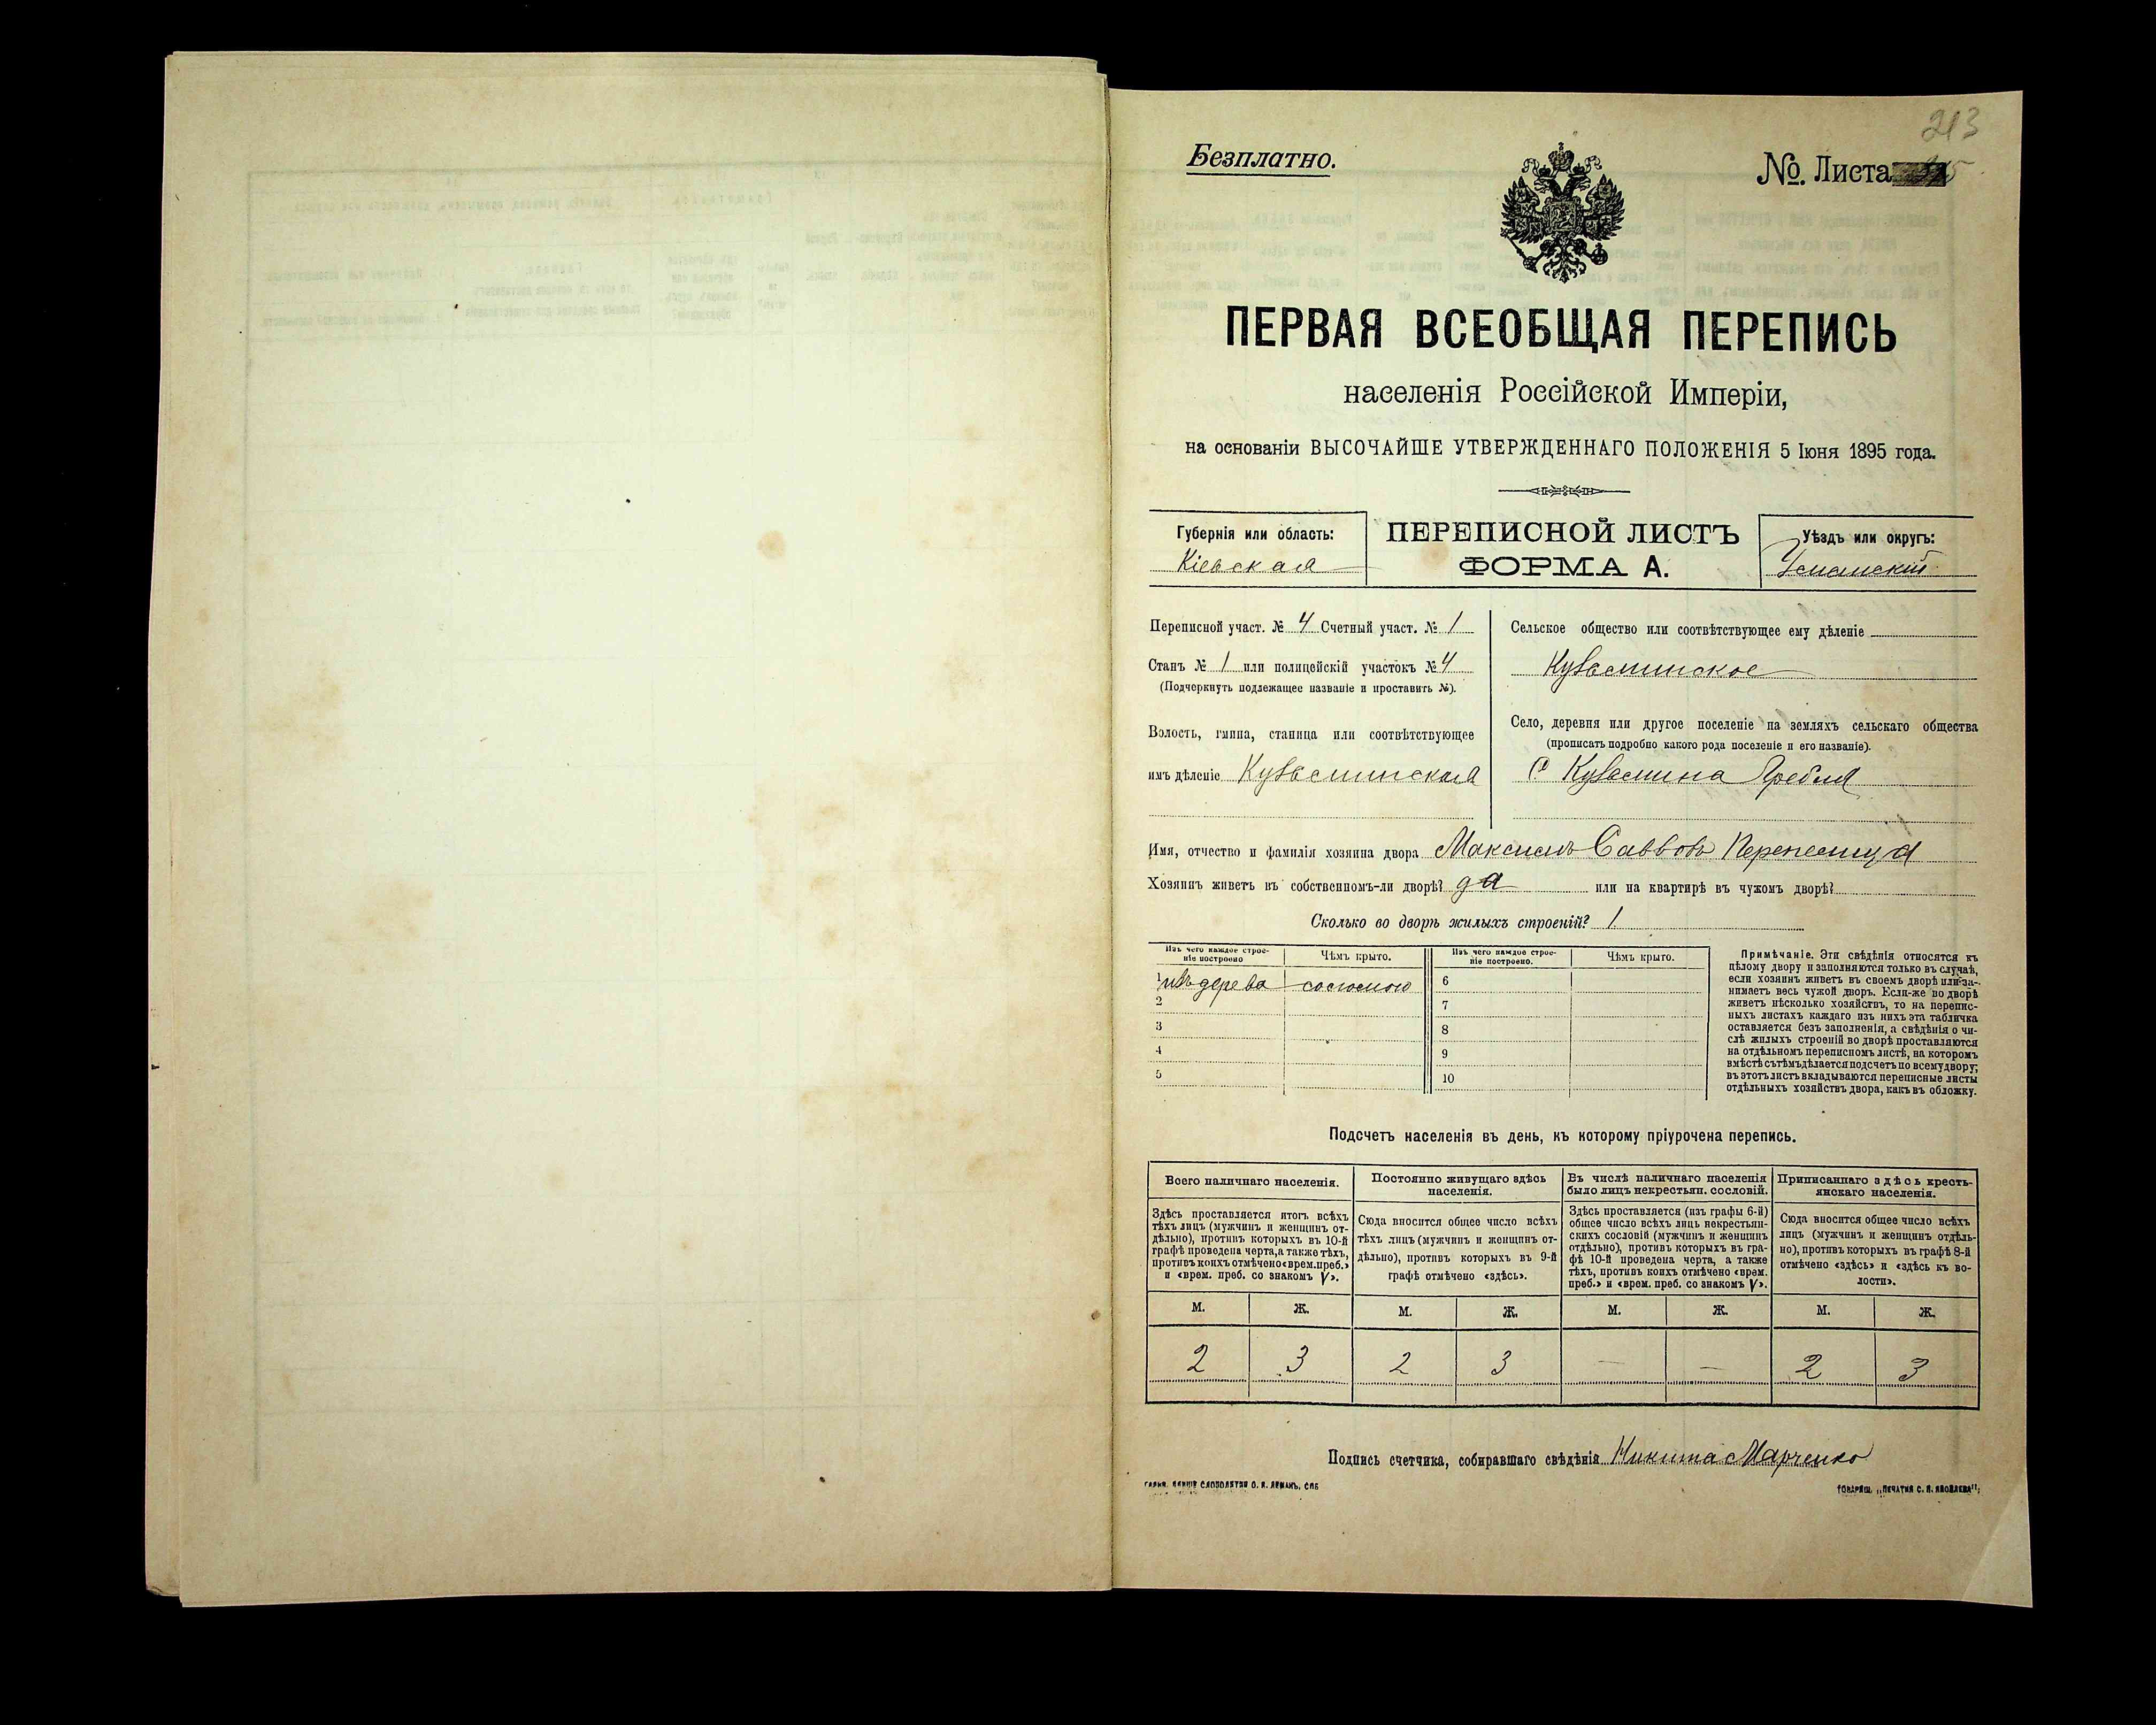 213
Безплатно.
№. Листа
ПЕРВАЯ ВСЕОБЩАЯ ПЕРЕПИСЬ
населенія Россійской Имперіи,
на основаніи ВЫСОЧАЙШЕ УТВЕРЖДЕННАГО ПОЛОЖЕНІЯ 5 Іюня 1895 года.
Губернія или область:
Кіевская
ПЕРЕПИСНОЙ ЛИСТЪ
ФОРМА А.
Уѣздъ или округъ:
Уманскій
Переписной участ. № 4 Счетный участ. № 1
Станъ № 1 или полицейскій участокъ № 4
(Подчеркнуть подлежащее названіе и проставить №).
Волость, гмина, станица или соотвѣтствующее
имъ дѣленіе Кузьминская
Сельское общество или соотвѣтствующее ему дѣленіе
Кузьминское
Село, деревня или другое поселеніе на земляхъ сельскаго общества
(прописать подробно какого рода поселеніе и его названіе).
С Кузьмина Гребля
Имя, отчество и фамилія хозяина двора Максимъ Саввовъ
Хозяинъ живетъ въ собственномъ-ли дворѣ? да или на квартирѣ въ чужомъ дворѣ?
Сколько во дворѣ жилыхъ строеній? 1.
Изъ чего каждое строе-
ніе построено
Чѣмъ крыто.
Изъ чего каждое строе-
ніе построено.
Чѣмъ крыто.
1 изъ дерева соломою
2
3
4
5
6
7
8
9
10
Примѣчаніе. Эти свѣдѣнія относятся къ
цѣлому двору и заполняются только въ случаѣ,
если хозяинъ живетъ въ своемъ дворѣ или за-
нимаетъ весь чужой дворъ. Если-же во дворѣ
живетъ нѣсколько хозяйствъ, то на перепис-
ныхъ листахъ каждаго изъ нихъ эта табличка
оставляется безъ заполненія, а свѣдѣнія о чи-
слѣ жилыхъ строеній во дворѣ проставляются
на отдѣльномъ переписномъ листѣ, на которомъ
вмѣстѣ съ тѣмъ дѣлается подсчетъ по всему двору;
въ этотъ листъ вкладываются переписные листы
отдѣльныхъ хозяйствъ двора, какъ въ обложку.
Подсчетъ населенія въ день, къ которому пріурочена перепись.
Всего наличнаго населенія.
Здѣсь проставляется итогъ всѣхъ
тѣхъ лицъ (мужчинъ и женщинъ от-
дѣльно), противъ которыхъ въ 10-й
графѣ проведена черта, а также тѣхъ,
противъ коихъ отмѣчено «врем. преб.»
и «врем. преб. со знакомъ V».
Постоянно живущаго здѣсь
населенія.
Сюда вносится общее число всѣхъ
тѣхъ лицъ (мужчинъ и женщинъ от-
дѣльно), противъ которыхъ въ 9-й
графѣ отмѣчено «здѣсь».
Въ числѣ наличнаго населенія
было лицъ некрестьян. сословій.
Здѣсь проставляется (изъ графы 6-й)
общее число всѣхъ лицъ некрестьян-
скихъ сословій (мужчинъ и женщинъ
отдѣльно), противъ которыхъ въ гра-
фѣ 10-й проведена черта, а также
тѣхъ, противъ коихъ отмѣчено «врем.
преб.» и «врем. преб. со знакомъ V».
Приписаннаго здѣсь кресть-
янскаго населенія.
Сюда вносится общее число всѣхъ
лицъ (мужчинъ и женщинъ отдѣль-
но), противъ которыхъ въ графѣ 8-й
отмѣчено «здѣсь» и «здѣсь къ во-
лости».
М. Ж. М. Ж. М. Ж. М. Ж.
2 3 2 3 — — 2 3
Подпись счетчика, собиравшаго свѣдѣнія Никита Марченко
СЛОВОЛИТНИ О. И. ЛЕМАНЪ, СПБ
ТОВАРИЩ. „ПЕЧАТНЯ С. П. ЯКОВЛЕВА“;